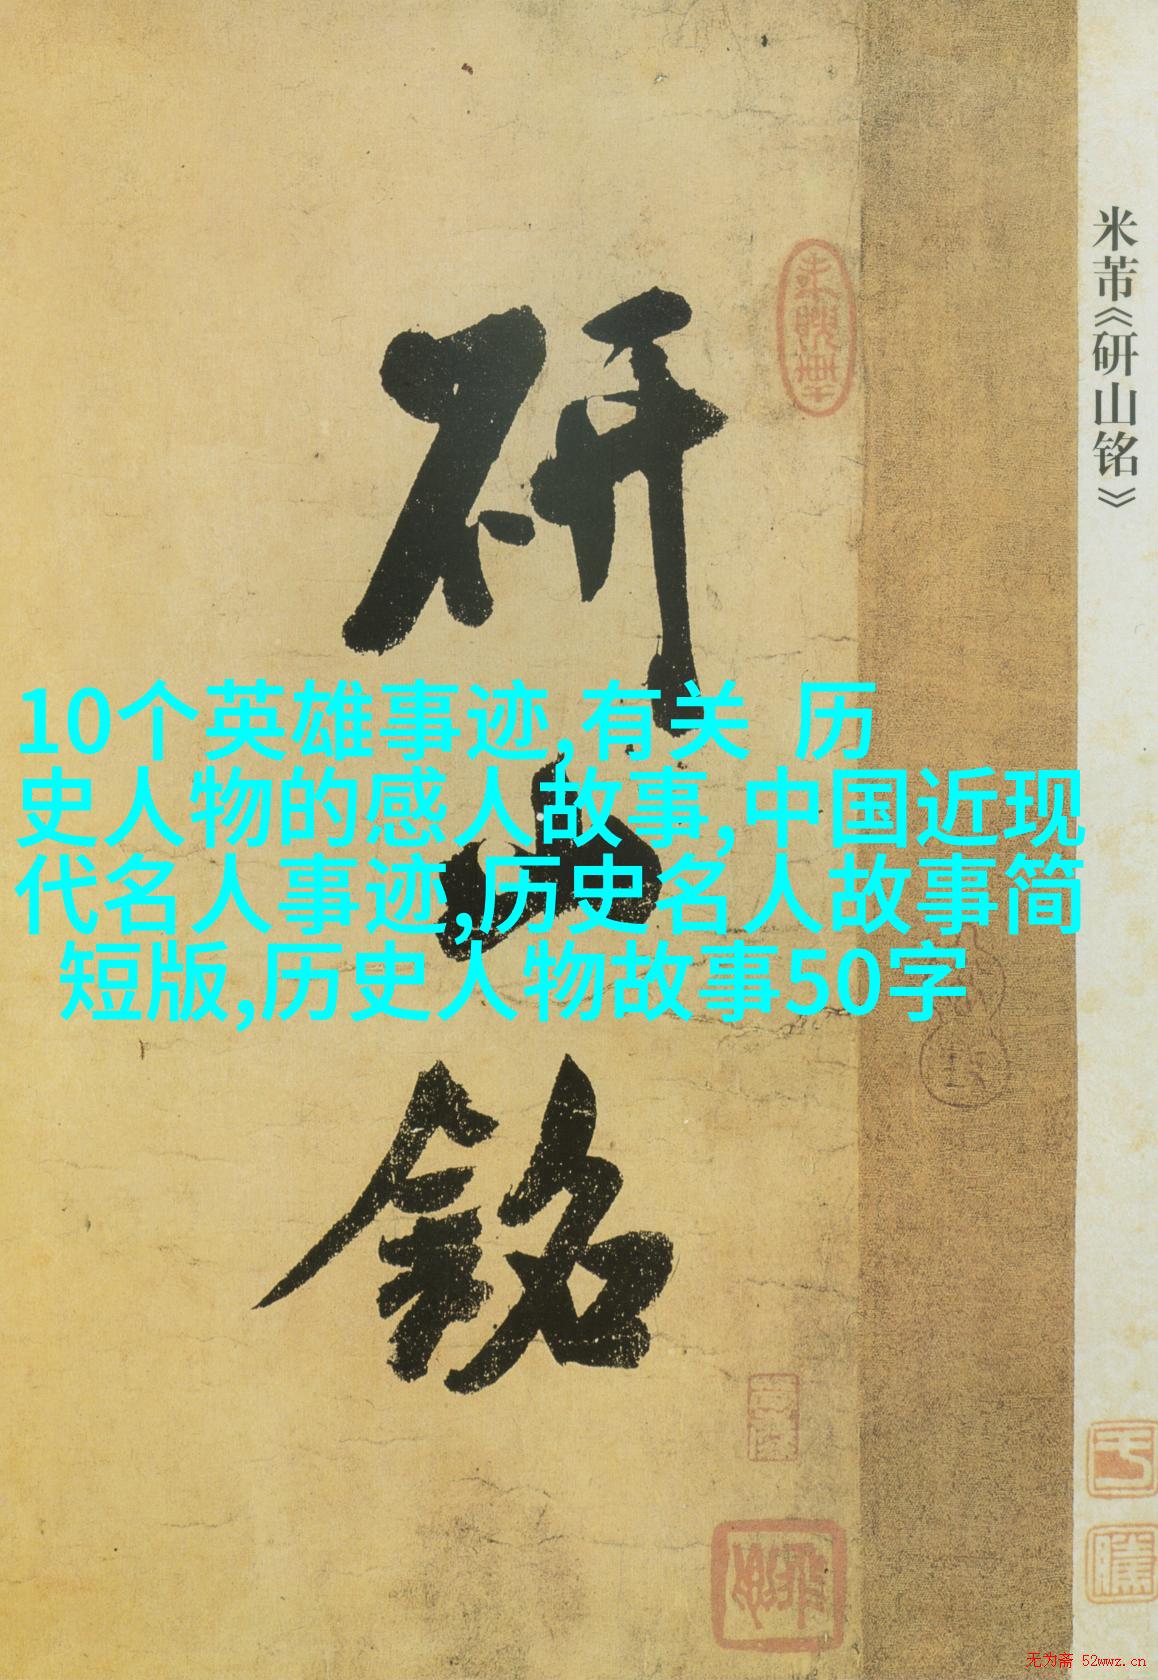 米芾《研山铭》
研山铭
10个英雄事迹,有关 历
史人物的感人故事,中国近现
代名人事迹,历史名人故事简
短版,历史人物故事50字
无为斋 52wwz.cn